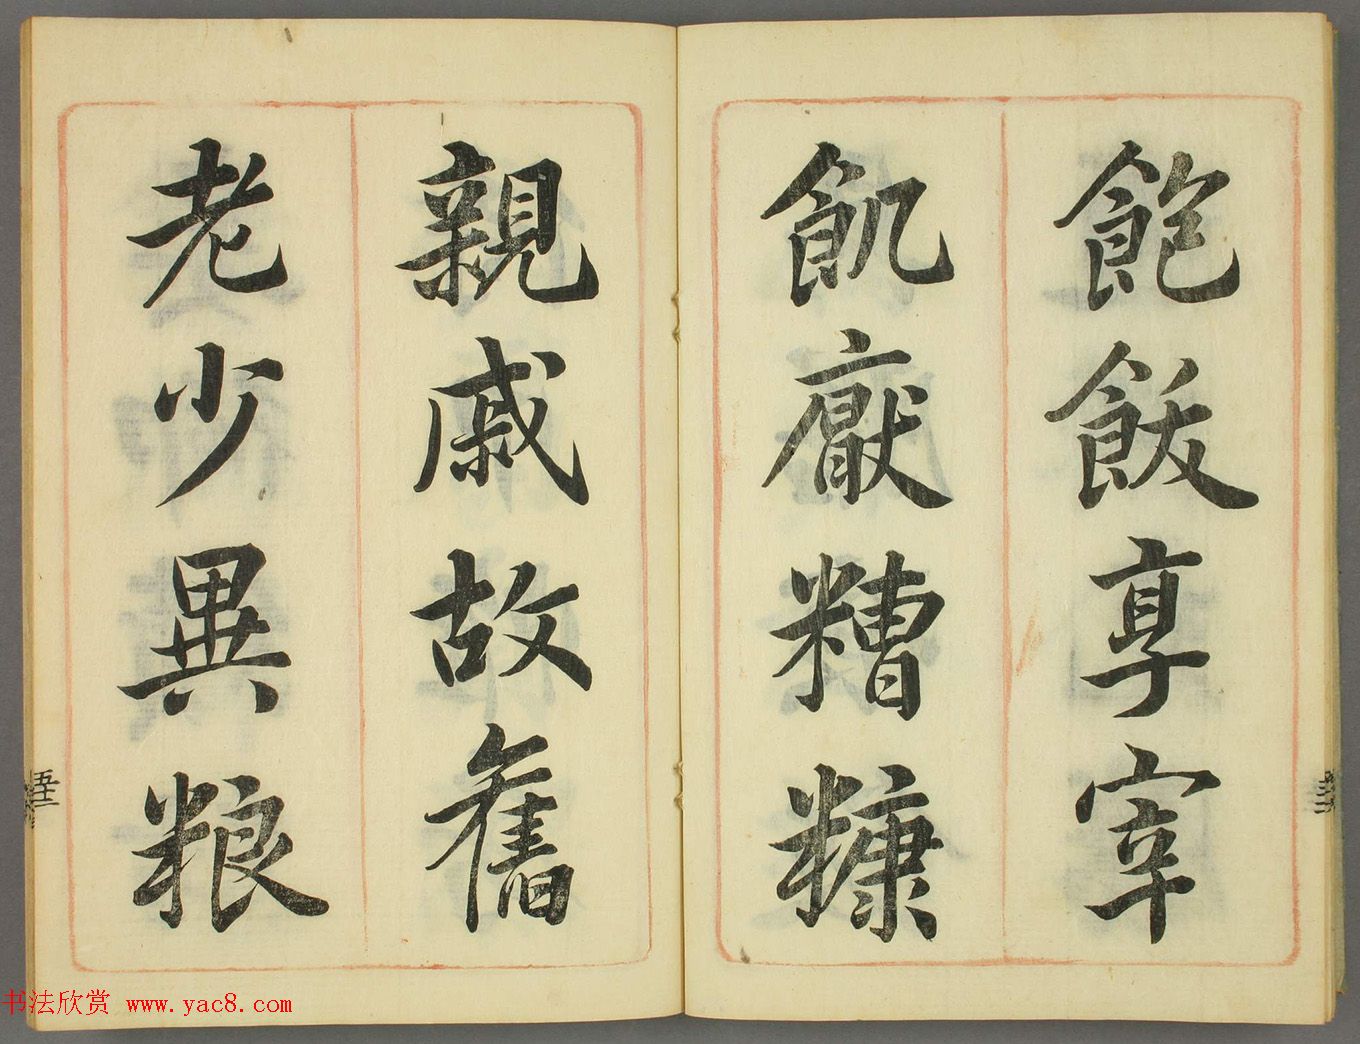 飽飯享宰
飢厭糟糠
親戚故舊
老少異粮
五十二
书法欣赏 www.yac8.com